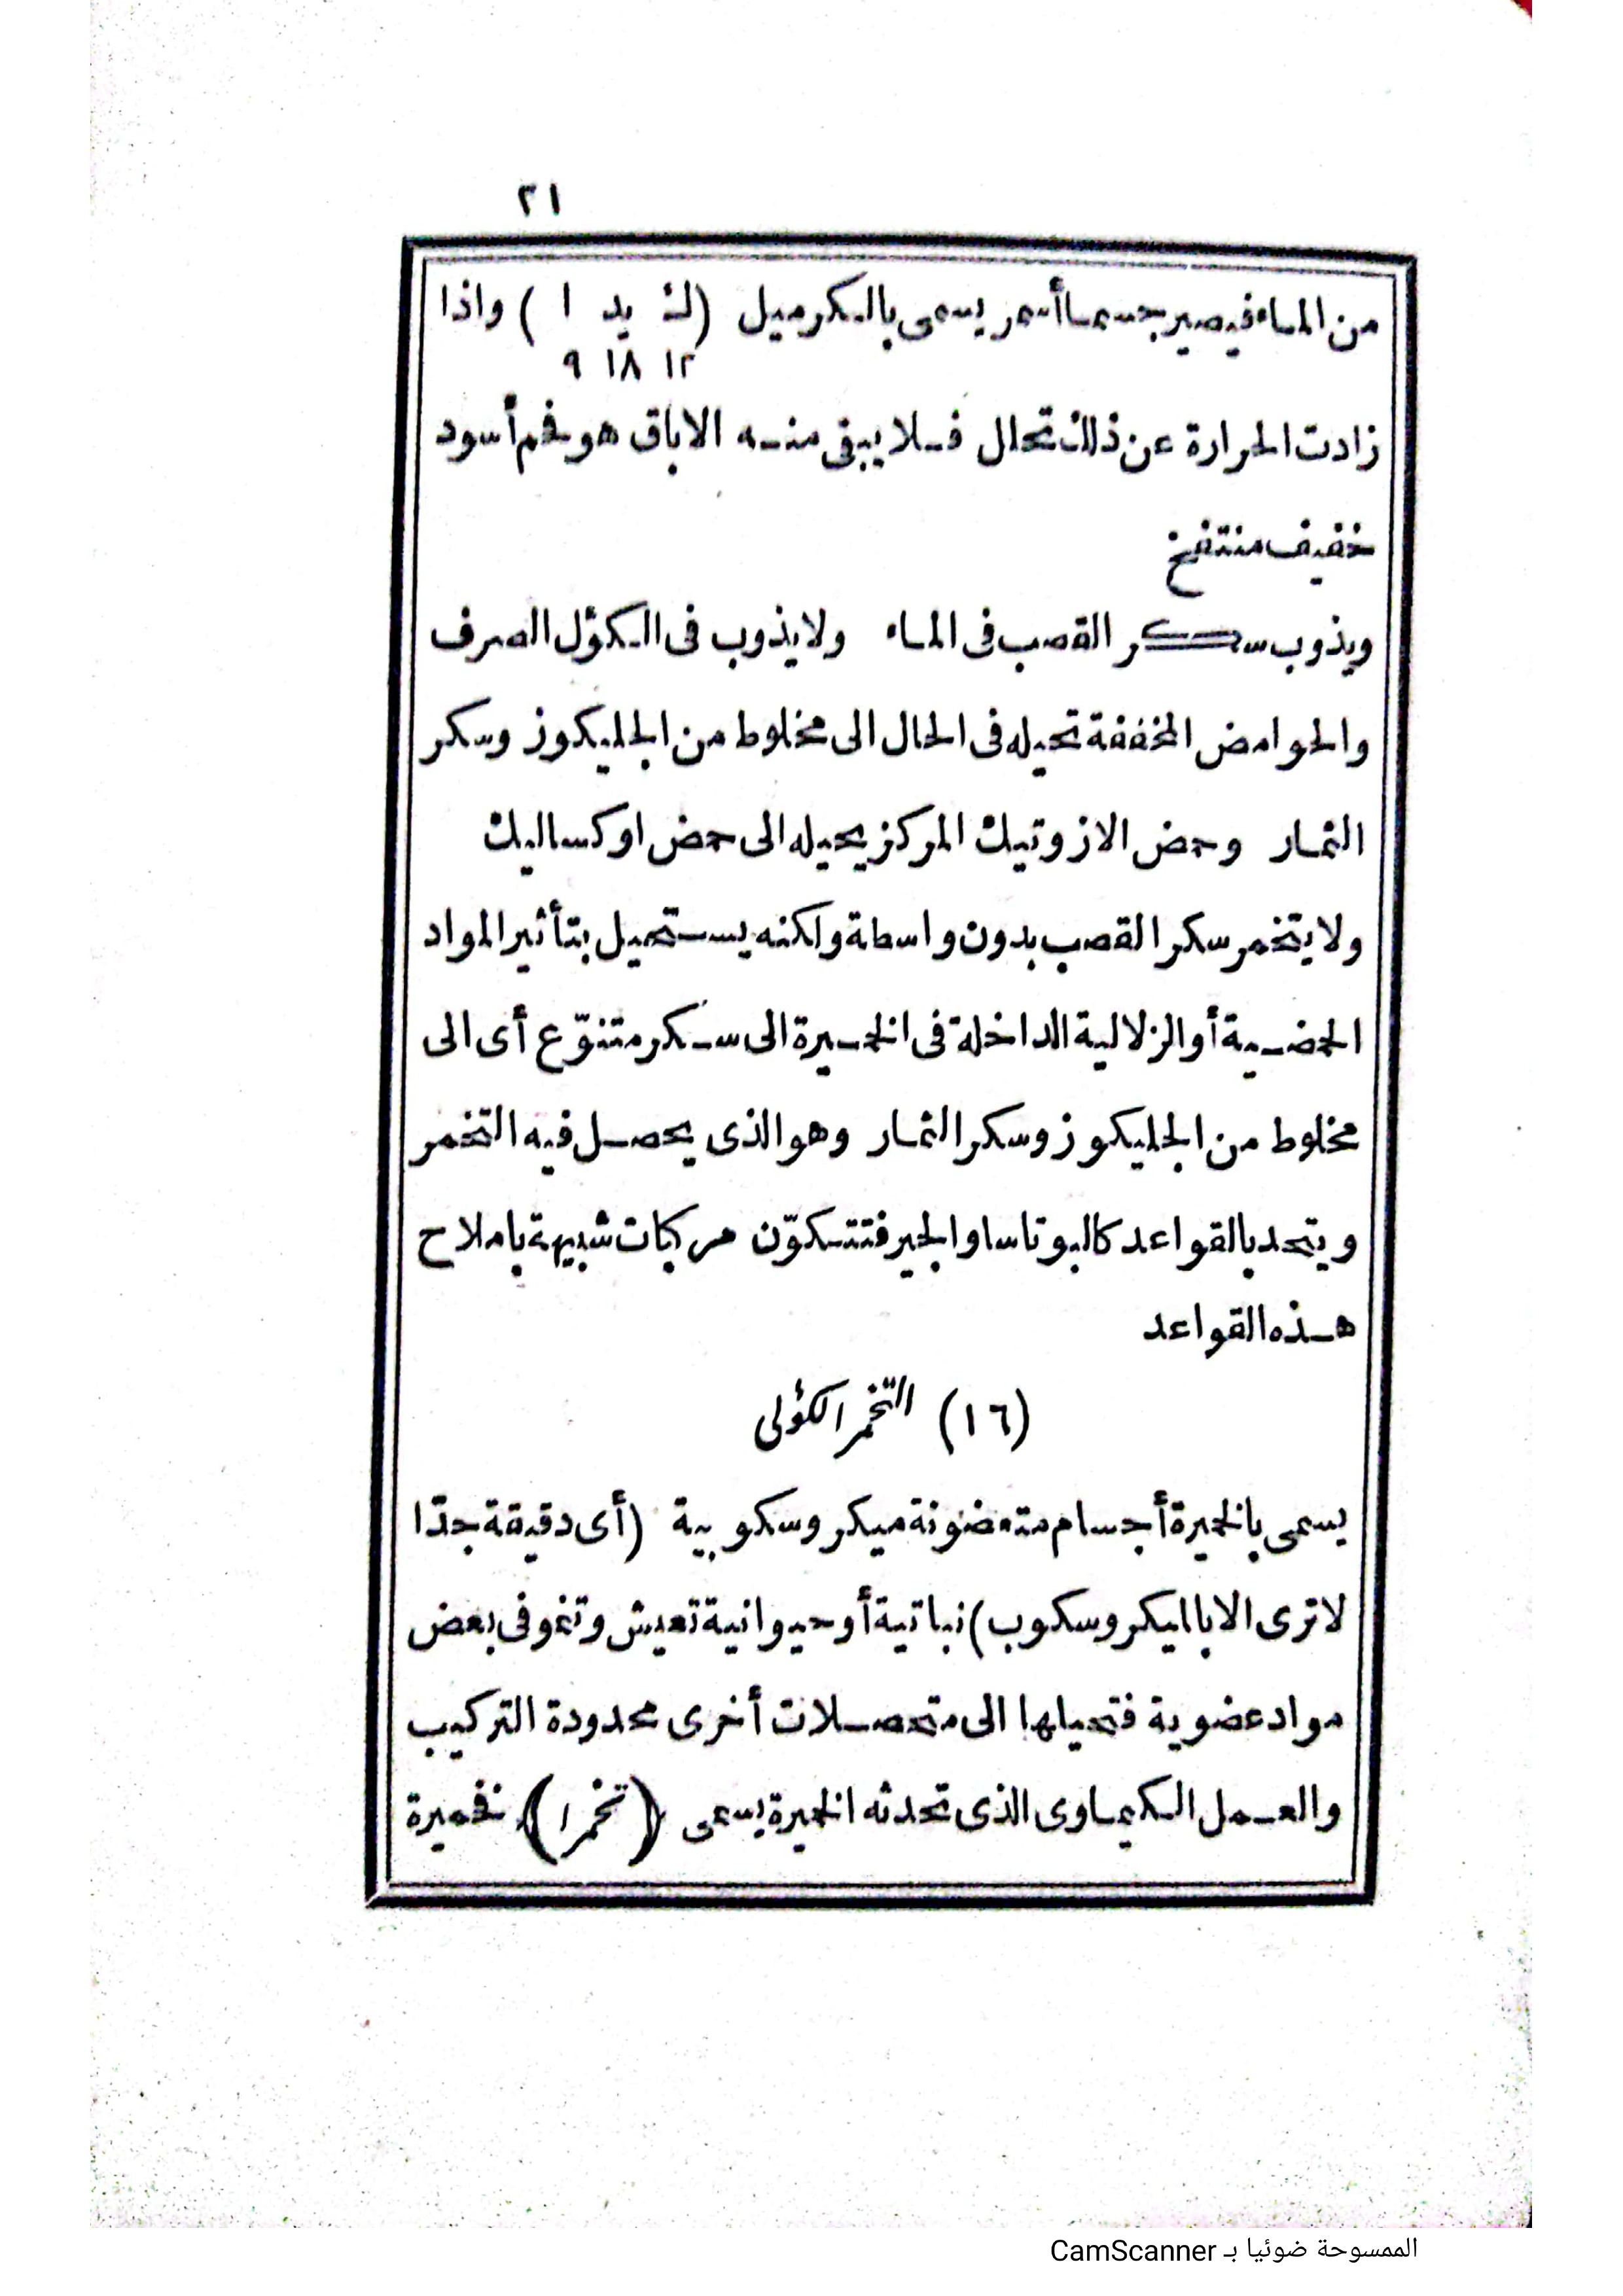 ٢١
من الماء فيصير جسما أسمر يسمى بالكرميل (ك يد ا) واذا
١٢ ١٨ ٩
زادت الحرارة عن ذلك تحلل فلا يبقى منه الا باق هو فحم أسود
خفيف منتفخ
ويذوب سكر القصب فى الماء ولا يذوب فى الكؤل الصرف
والحوامض المخففة تحيله فى الحال الى مخلوط من الجليكوز وسكر
الثمار وحمض الازوتيك المركز يحيله الى حمض اوكساليك
ولا يتخمر سكر القصب بدون واسطة ولكنه يستحيل بتأثير المواد
الحمضية أو الزلالية الداخلة فى الخميرة الى سكر متنوّع أى الى
مخلوط من الجليكوز وسكر الثمار وهو الذى يحصل فيه التخمر
ويتحد بالقواعد كالبوتاسا والجير فتتكوّن مركبات شبيهة باملاح
هذه القواعد
(١٦) التخمر الكؤلى
يسمى بالخميرة أجسام متعضونة ميكروسكوبية (أى دقيقة جدّا
لا ترى الا بالميكروسكوب) نباتية أو حيوانية تعيش وتنمو فى بعض
مواد عضوية فتحيلها الى متحصلات أخرى محدودة التركيب
والعمل الكيماوى الذى تحدثه الخميرة يسمى (تخمرا) فخميرة
الممسوحة ضوئيا بـ CamScanner